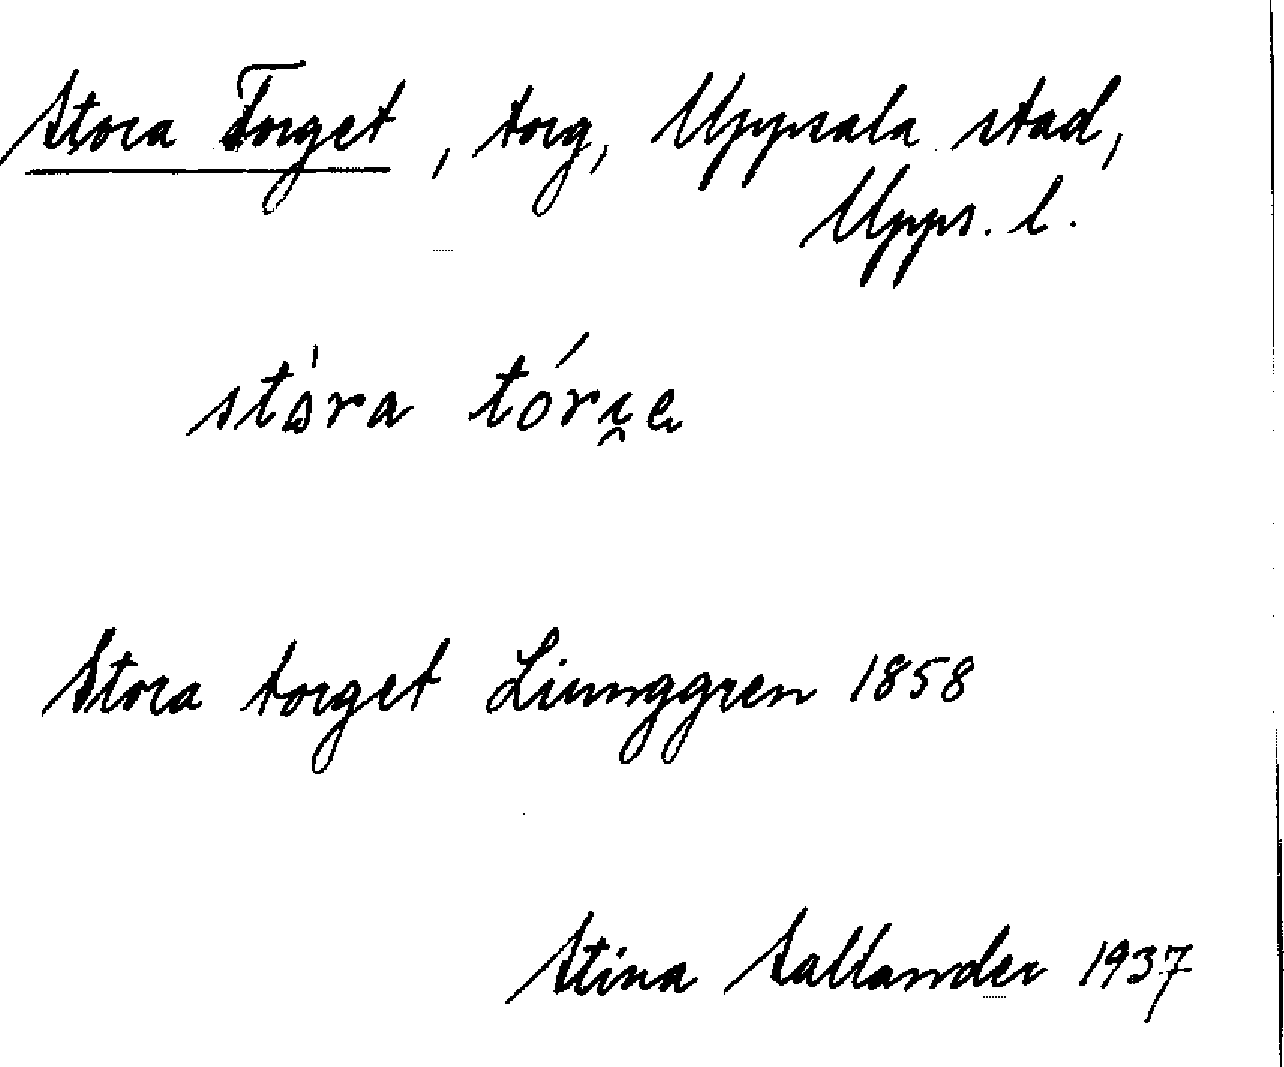 Stora Torget, torg, Uppsala stad,
Upps. l.
Stora torget Liunggren 1858
Stina Sallander 1937